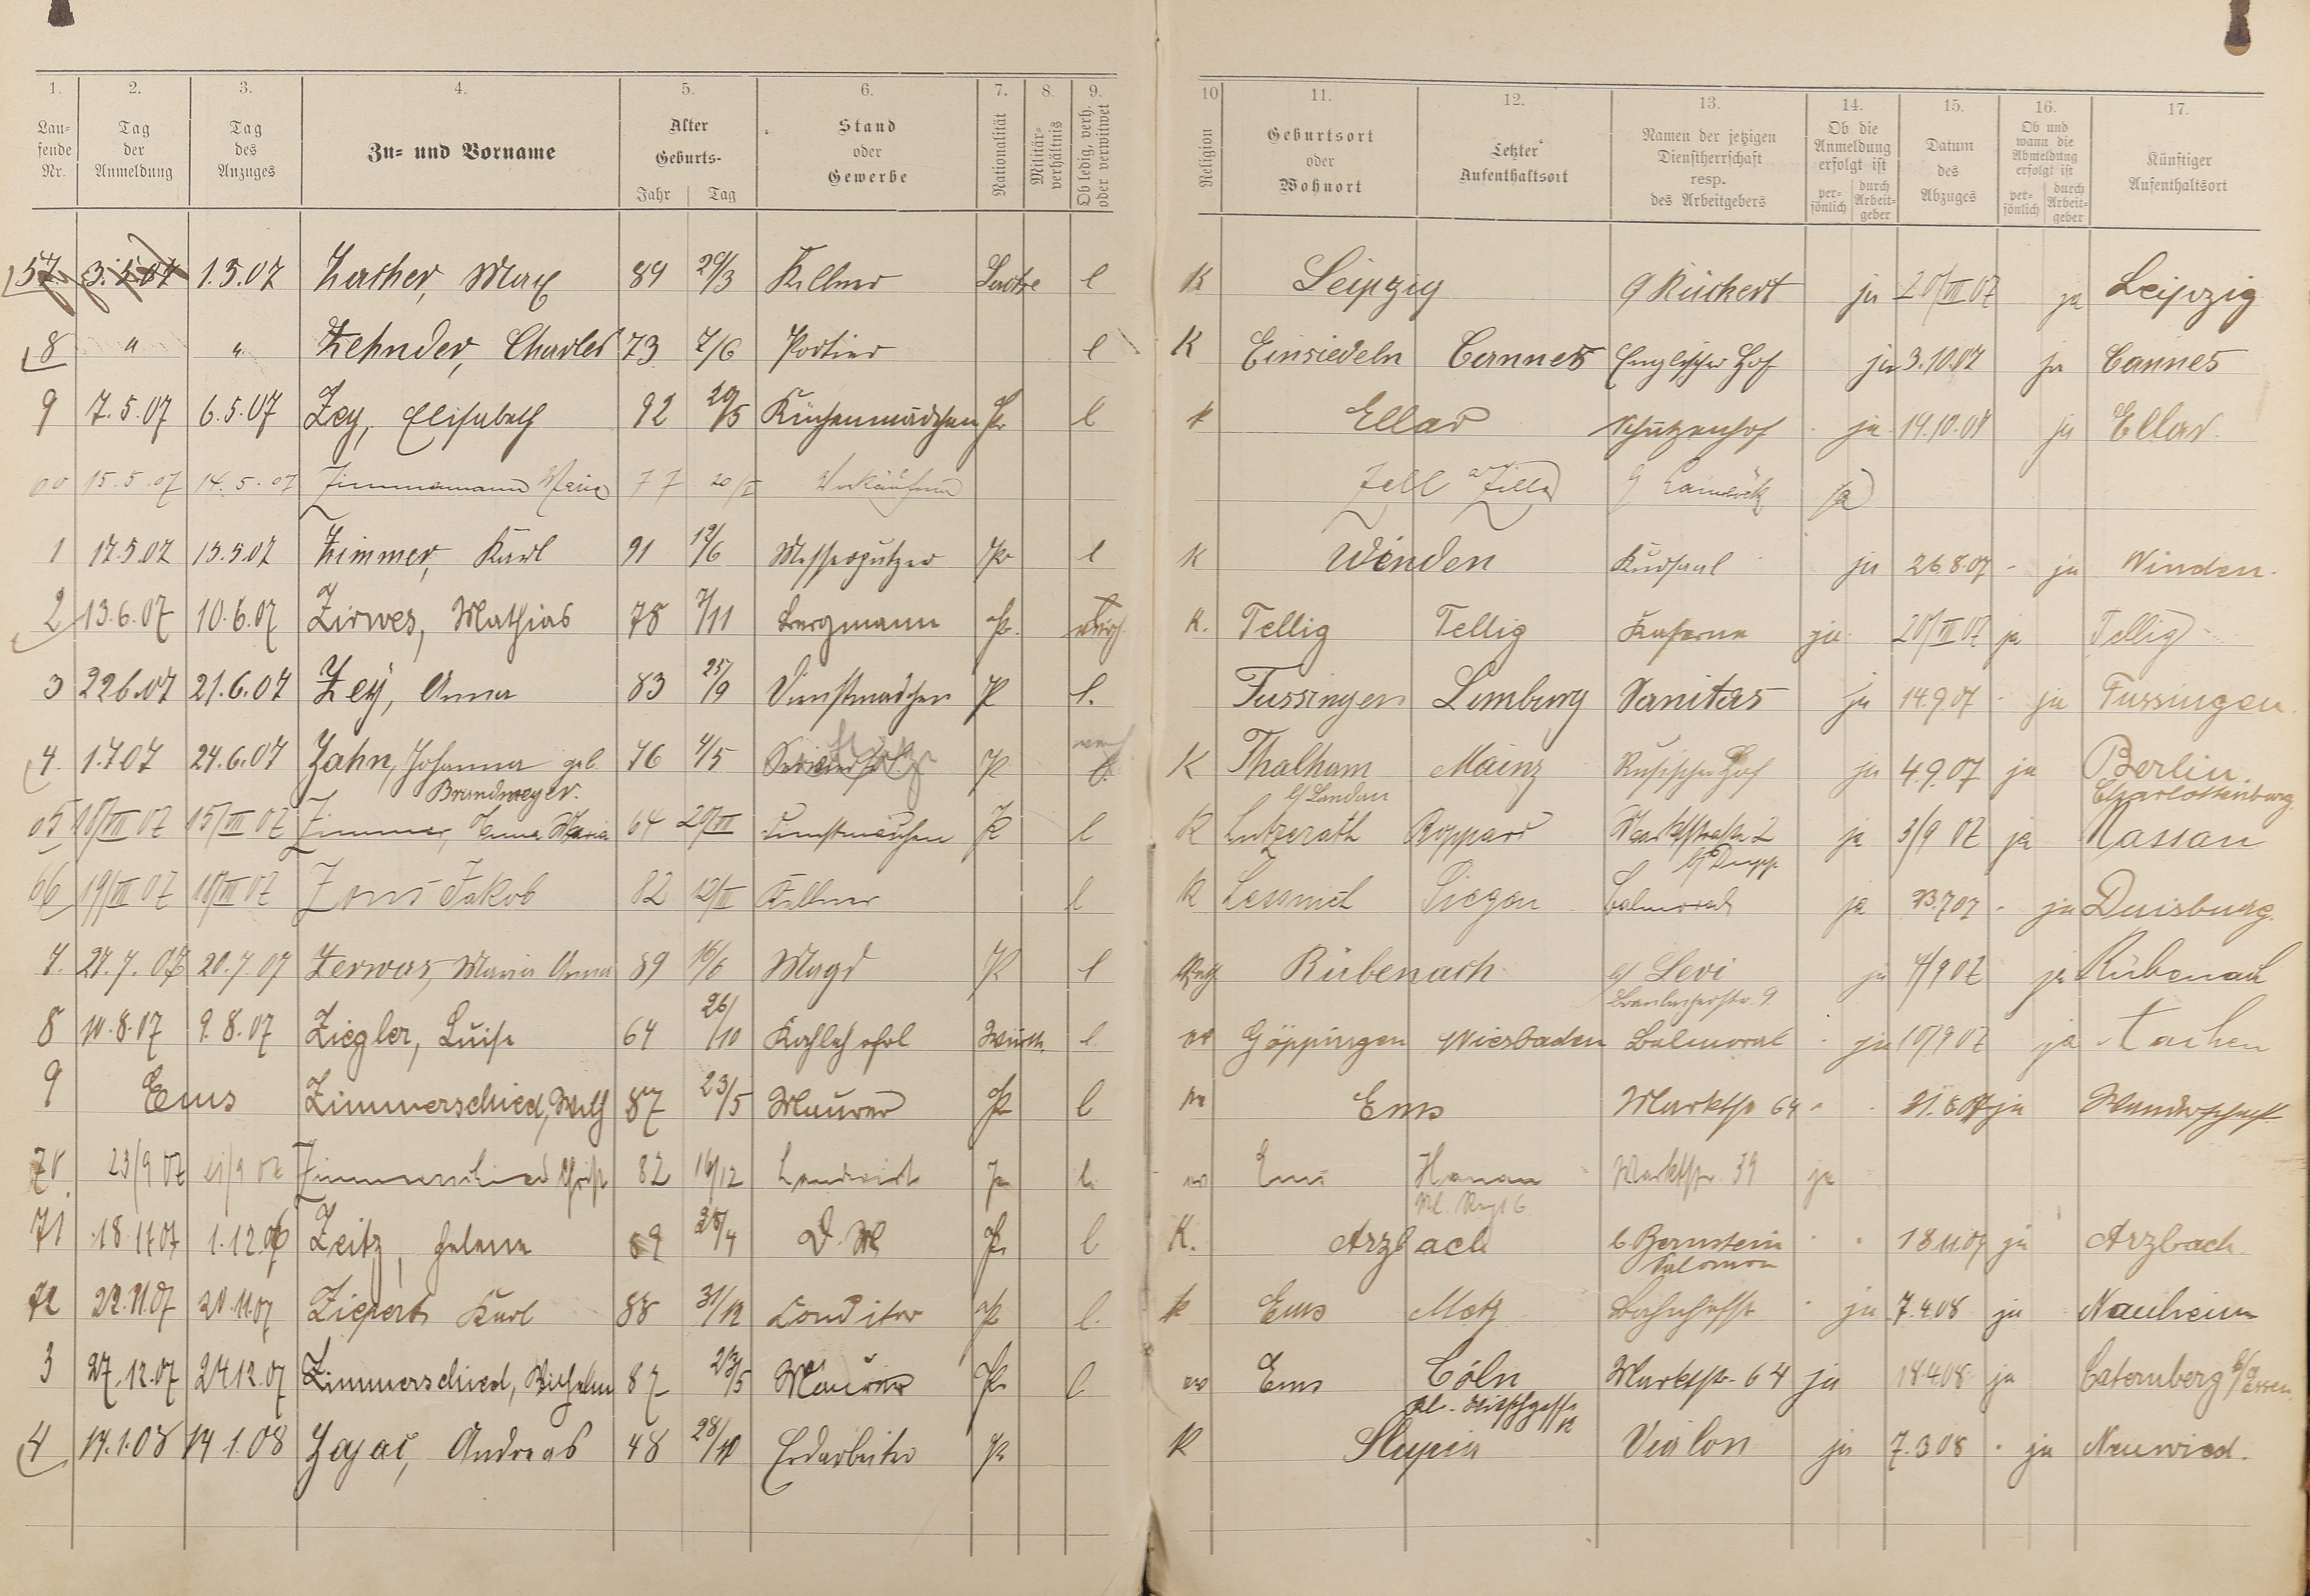 1. 2. 3. 4. 5. 6. 7. 8. 9. 10 11. 12. 13. 14. 15. 16. 17.
Lau-
fende
Nr.
Tag
der
Anmeldung
Tag
des
Anzuges
Zu- und Vorname
Alter
Geburts-
Jahr Tag
Stand
oder
Gewerbe
Nationalität
Militär-
verhältnis
Ob ledig, verh.
oder verwitwet
Religion
Geburtsort
oder
Wohnort
Letzter
Aufenthaltsort
Namen der jetzigen
Dienstherrschaft
resp.
des Arbeitgebers
Ob die
Anmeldung
erfolgt ist
per-
sönlich
durch
Arbeit-
geber
Datum
des
Abzuges
Ob und
wann die
Abmeldung
erfolgt ist
per-
sönlich
durch
Arbeit-
geber
Künftiger
Aufenthaltsort
57. 3.5.07 1.5.07 Max 89 29/3 Kellner l K Leipzig Rückert ja ja Leipzig
8 " " Zehnder, Charles 73 7/6 Portier l K Einsiedeln Cannes Englischer Hof ja 3.10.07 ja Cannes
9 7.5.07 6.5.07 Zey, Elisabeth 92 Küchenmädchen Pr l k Ellar Schützenhof ja 19.10.07 ja Ellar.
15.5.07 14.5.07 Zimmermann Maria 77 Verkäuferin Zell a/Ziller ja
1 17.5.07 15.5.07 Zimmer, Karl 91 Messerputzer Pr l K Winden Kursaal ja 26.8.07 - ja Winden.
2 13.6.07 10.6.07 Zirwes, Mathias 78 7/11 Bergmann Pr. K. Tellig Tellig Kaserne ja ja Tellig
3 22.6.07 21.6.07 Zey, Anna 83 25/9 Dienstmädchen P l. Fussingen Limburg Sanitas ja 14.9.07 - ja Fussingen.
4. 1.7.07 24.6.07 Zahn, Johanna geb. 76 4/5 P K Thalham Mainz Russischer Hof ja 4.9.07 ja Berlin.
Brandmeyer. b/Landau Charlottenburg.
65 18/VII 07 15/VII 07 Zimmer, Anna Maria 64 Dienstmädchen P l K Lutzerath Boppard Marktstraße 2 ja 3/9 07 ja Nassau
66 19/VII 07 18/VII 07 Jakob 82 Kellner l K Siegen Balmoral ja - ja Duisburg.
7. 27.7.07 20.7.07 Zerwas, Maria Anna 89 16/6 Magd P l Kath Rübenach b/ Levi ja 4/9 07 ja Rübenach
8 10.8.07 9.8.07 Ziegler, Luise 64 26/10 Württ. l. Göppingen Wiesbaden Balmoral - ja 10/9 07 ja Aachen
9 Ems Zimmerschied, Wilh 87 23/5 Maurer Pr l Ems Marktstr 64 21.8.07 ja Wanderschaft
70. 23/9 07 Zimmerschied 82 16/12 Landwirt l. Ems Hanau Marktstr. 39 ja
71 18.11.07 1.12.06 Zeitz, Helene 89 D.M Pr l K. Arzbach b. Bernstein 18.11.07 ja Arzbach
Salomon
72 22.11.07 20.11.07 Karl 88 31/12 Conditor Pr l. k Ems Metz Bahnhofstr ja 7.4.08 ja Nauheim
3 27.12.07 24.12.07 Zimmerschied, Wilhelm 87 23/5 Maurer Pr l Ems Cöln Marktstr. 64 ja 18.4.08 ja Caternberg b/Essen.
4 14.1.08 14.1.08 Zajac, Andreas 48 28/10 Erdarbeiter Pr K Slupia Vialon ja 7.3.08 - ja Neuwied.